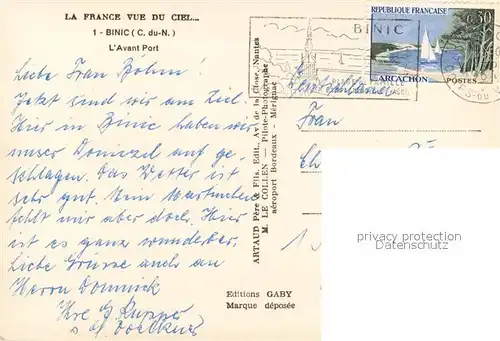 LA FRANCE VUE DU CIEL...
1 - BINIC (C. du-N.)
L'Avant Port
Liebe Frau Böhm!
Jetzt sind wir am Ziel.
Hier in Binic haben wir
unser Domizil auf ge-
schlagen. Das Wetter ist
sehr gut. Mein
fehlt mir aber doch. Hier
ist es ganz wunderbar.
Liebe Grüsse auch an
Herrn Dominick
Ihre G. Kupper
ARTAUD Père & Fils, Edit., Av. de la Close, Nantes
M. LE COLLEN — Pilote-Photographe
aéroport Bordeaux - Mérignac
Editions GABY
Marque déposée
BINIC
RÉPUBLIQUE FRANÇAISE
0,30
ARCACHON
POSTES
Frau
privacy protection
Datenschutz